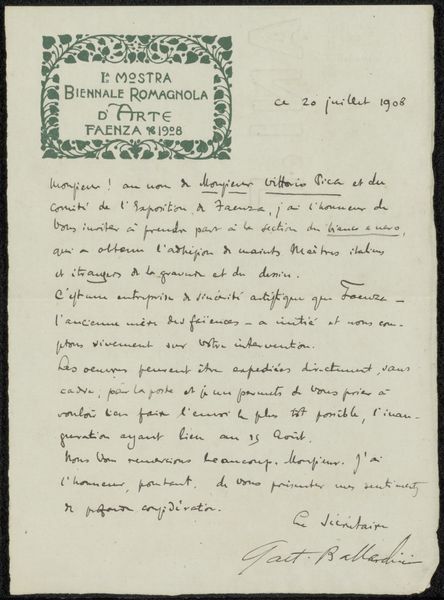 I.a MOSTRA
BIENNALE ROMAGNOLA
D'ARTE
FAENZA 1908
ce 20 juillet 1908
Monsieur! au nom de Monsieur Vittorio Pica et du
Comité de l'Exposition de Faenza, j'ai l'honneur de
Vous inviter à prendre part à la section du bianco e nero,
qui a obtenu l'adhésion de maints Maîtres italiens
et étrangers de la gravure et du dessin.
C'est une entreprise de sincérité artistique que Faenza –
l'ancienne mère des faïences – a initié et nous com-
ptons vivement sur votre intervention.
Les oeuvres peuvent être expediées directement, sans
cadre, par la poste et je me permets de Vous prier à
vouloir bien faire l'envoi le plus tôt possible, l'inau-
guration ayant lieu au 15 Août.
Nous Vous remercions beaucoup. Monsieur. J'ai
l'honneur, pourtant, de vous présenter mes sentiments
de profonde considération.
Le Sécrétaire
Gaet. Ballardini